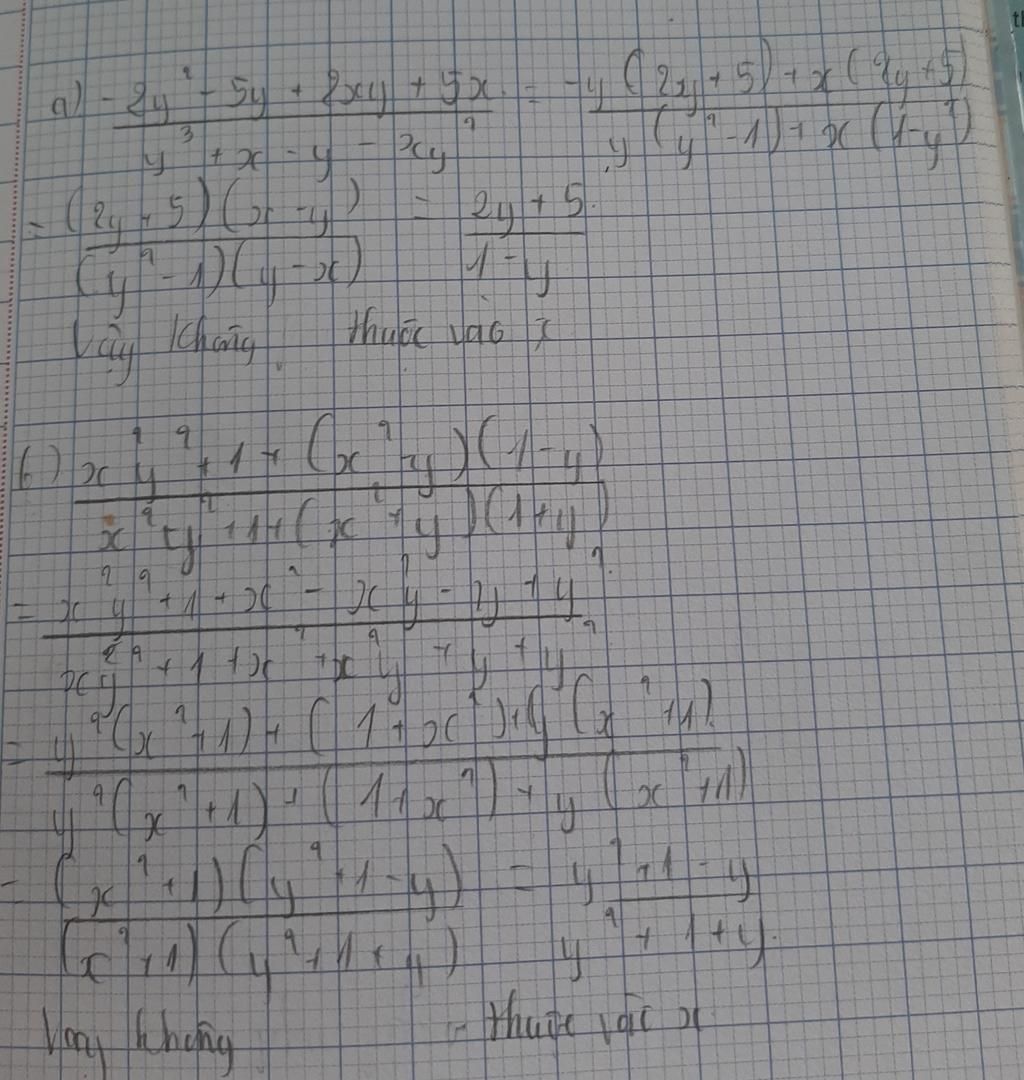 a) -2y² - 5y + 2xy + 5x / y³ + x - y - xy² = -y(2y + 5) + x(2y + 5) / y(y² - 1) + x(1 - y²)
= (2y + 5)(x - y) / (y² - 1)(y - x) = 2y + 5 / 1 - y
Vậy không thuộc vào x
b) x²y² + 1 + (x² - y)(1 - y) / x²y² + 1 + (x² + y)(1 + y)
= x²y² + 1 + x² - x²y - y + y² / x²y² + 1 + x² + x²y + y + y²
= y²(x² + 1) + (1 + x²) + y(x² + 1) / y²(x² + 1) + (1 + x²) + y(x² + 1)
= (x² + 1)(y² + 1 - y) / (x² + 1)(y² + 1 + y) = y² + 1 - y / y² + 1 + y
Vậy không thuộc vào x